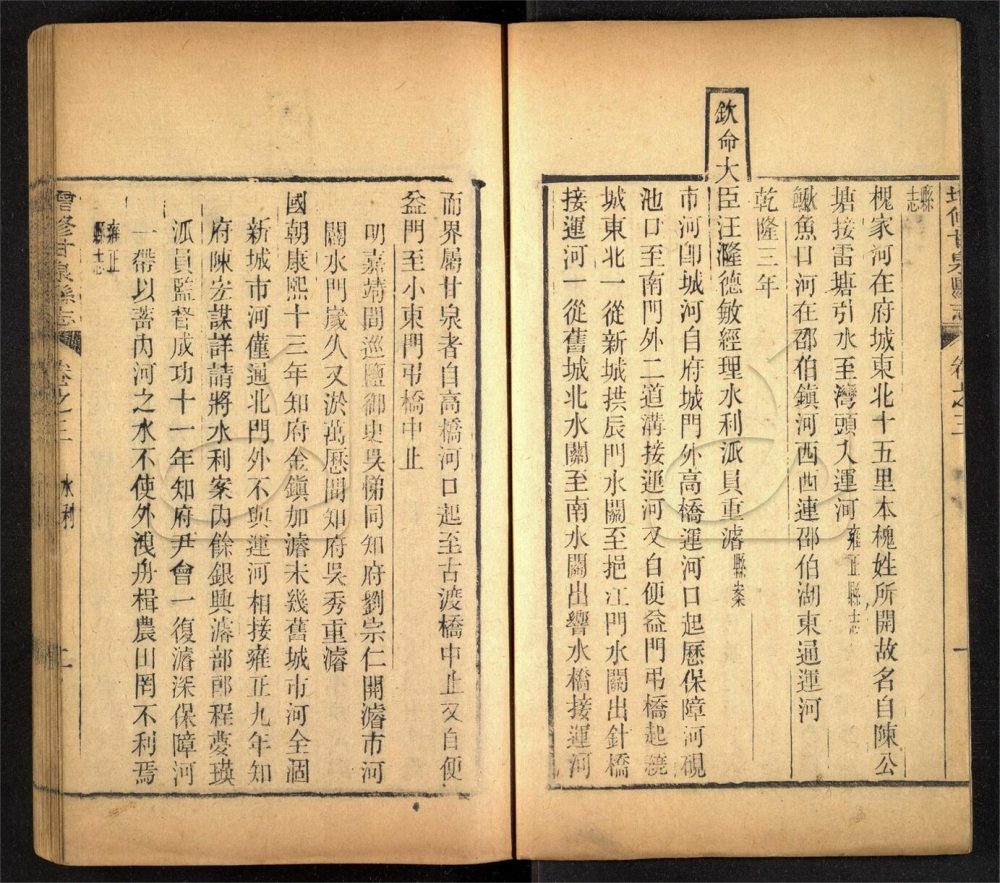 增修甘泉縣志 卷之三
縣志
槐家河在府城東北十五里本槐姓所開故名自陳公
塘接雷塘引水至灣頭入運河雍正縣志
鰍魚口河在邵伯鎮河西西連邵伯湖東通運河
乾隆三年
欽命大臣汪漋德敏經理水利派員重濬縣案
市河卽城河自府城門外高橋運河口起歷保障河硯
池口至南門外二道溝接運河又自便益門弔橋起遶
城東北一從新城拱辰門水關至挹江門水關出針橋
接運河一從舊城北水關至南水關出響水橋接運河
而界屬甘泉者自高橋河口起至古渡橋中止又自便
益門至小東門弔橋中止
明嘉靖間巡鹽御史吳悌同知府劉宗仁開濬市河
闢水門歲久又淤萬歷間知府吳秀重濬
國朝康熙十三年知府金鎮加濬未幾舊城市河全涸
新城市河僅通北門外不與運河相接雍正九年知
府陳宏謀詳請將水利案內餘銀興濬部郎程夢瑛
泒員監督成功十一年知府尹會一復濬深保障河
一帶以蓄內河之水不使外洩舟楫農田罔不利焉
雍正縣志
增修甘泉縣志 卷之三 水利